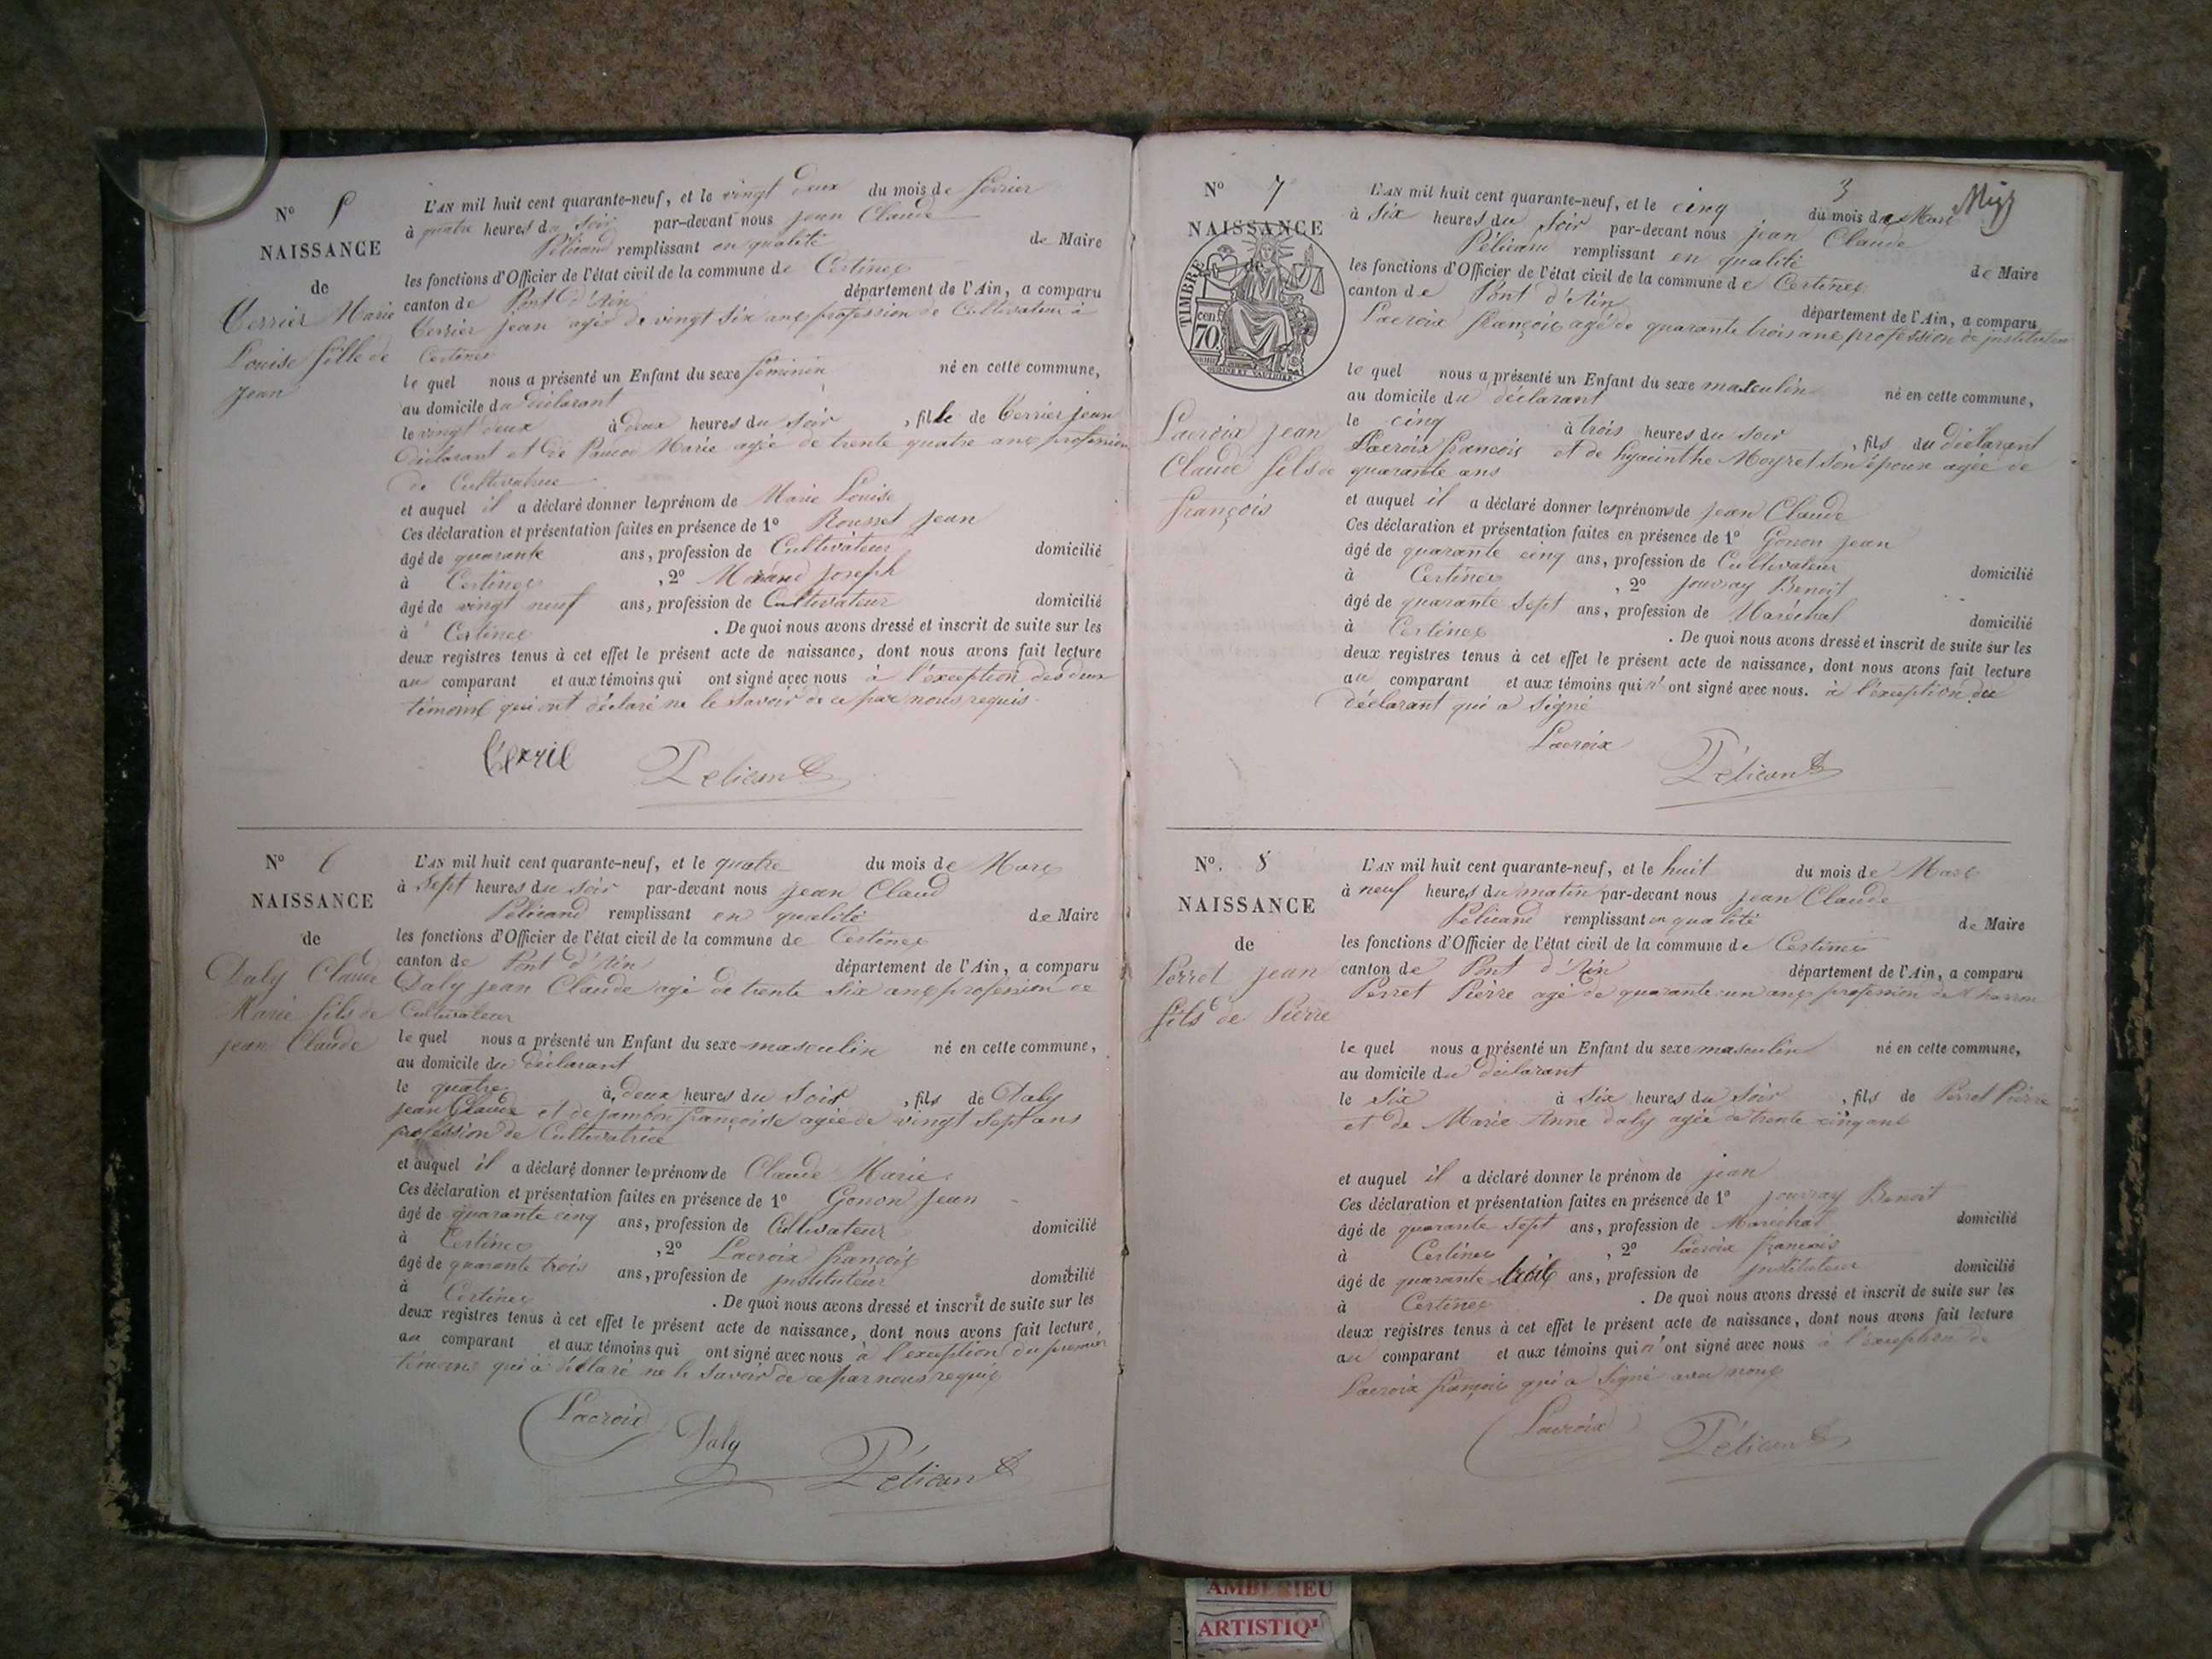 N° 5
NAISSANCE
de
Verrier Marie
Louise fille de
jean
L'AN mil huit cent quarante-neuf, et le vingt deux du mois de février
à quatre heures du soir par-devant nous jean Claude
Pélicand remplissant en qualité de Maire
les fonctions d'Officier de l'état civil de la commune de Certines
canton de Pont d'Ain département de l'Ain, a comparu
Verrier jean agé de vingt six ans profession de Cultivateur à
Certines
le quel nous a présenté un Enfant du sexe féminin né en cette commune,
au domicile du déclarant
le vingt deux à deux heures du soir, fille de Verrier jean
déclarant et de Marie agée de trente quatre ans profession
de Cultivatrice
et auquel il a déclaré donner les prénom de Marie Louise
Ces déclaration et présentation faites en présence de 1° Rousset jean
âgé de quarante ans, profession de Cultivateur domicilié
à Certines, 2° Morand joseph
âgé de vingt neuf ans, profession de Cultivateur domicilié
à Certines. De quoi nous avons dressé et inscrit de suite sur les
deux registres tenus à cet effet le présent acte de naissance, dont nous avons fait lecture
au comparant et aux témoins qui ont signé avec nous à l'exception des deux
témoins qui ont déclaré ne le savoir de ce par nous requis
Pélicand
N° 6
NAISSANCE
de
Daly Claude
Marie fils de
jean Claude
L'AN mil huit cent quarante-neuf, et le quatre du mois de Mars
à sept heures du soir par-devant nous jean Claud
Pélicand remplissant en qualité de Maire
les fonctions d'Officier de l'état civil de la commune de Certines
canton de Pont d'Ain département de l'Ain, a comparu
Daly jean Claude agé de trente six ans profession de
Cultivateur
le quel nous a présenté un Enfant du sexe masculin né en cette commune,
au domicile du déclarant
le quatre à deux heures du soir, fils de Daly
jean Claude et de jambon françoise agée de vingt sept ans
profession de Cultivatrice
et auquel il a déclaré donner les prénom de Claude Marie
Ces déclaration et présentation faites en présence de 1° Gonon jean
âgé de quarante cinq ans, profession de Cultivateur domicilié
à Certines, 2° Lacroix françois
âgé de quarante trois ans, profession de instituteur domicilié
à Certines. De quoi nous avons dressé et inscrit de suite sur les
deux registres tenus à cet effet le présent acte de naissance, dont nous avons fait lecture
au comparant et aux témoins qui ont signé avec nous à l'exception du premier
témoins qui a déclaré ne le savoir de ce par nous requis
Lacroix Daly Pélicand
3
N° 7
NAISSANCE
de
TIMBRE
cen. 70
Lacroix jean
Claude fils de
françois
L'AN mil huit cent quarante-neuf, et le cinq du mois de Mars
à six heures du soir par-devant nous jean Claude
Pélicand remplissant en qualité de Maire
les fonctions d'Officier de l'état civil de la commune de Certines
canton de Pont d'Ain département de l'Ain, a comparu
Lacroix françois agé de quarante trois ans profession de instituteur
le quel nous a présenté un Enfant du sexe masculin né en cette commune,
au domicile du déclarant
le cinq à trois heures du soir, fils du déclarant
Lacroix francois et de hyacinthe Moyret son épouse agée de
quarante ans
et auquel il a déclaré donner les prénoms de jean Claude
Ces déclaration et présentation faites en présence de 1° Gonon jean
âgé de quarante cinq ans, profession de Cultivateur domicilié
à Certines, 2° jouvray Benoit
âgé de quarante sept ans, profession de Maréchal domicilié
à Certines. De quoi nous avons dressé et inscrit de suite sur les
deux registres tenus à cet effet le présent acte de naissance, dont nous avons fait lecture
au comparant et aux témoins qui n'ont signé avec nous. à l'exception du
déclarant qui a signé
Lacroix Pélicand
N°. 8
NAISSANCE
de
Perret jean
fils de Pierre
L'AN mil huit cent quarante-neuf, et le huit du mois de Mars
à neuf heures du matin par-devant nous jean Claude
Pélicand remplissant en qualité de Maire
les fonctions d'Officier de l'état civil de la commune de Certines
canton de Pont d'Ain département de l'Ain, a comparu
Perret Pierre agé de quarante un ans profession de Charron
le quel nous a présenté un Enfant du sexe masculin né en cette commune,
au domicile du déclarant
le six à six heures du soir, fils de Perret Pierre
et de Marie Anne daly agée de trente cinq ans
et auquel il a déclaré donner le prénom de jean
Ces déclaration et présentation faites en présence de 1° jouvray Benoit
âgé de quarante sept ans, profession de Maréchal domicilié
à Certines, 2° Lacroix francois
âgé de quarante trois ans, profession de instituteur domicilié
à Certines. De quoi nous avons dressé et inscrit de suite sur les
deux registres tenus à cet effet le présent acte de naissance, dont nous avons fait lecture
au comparant et aux témoins qui n'ont signé avec nous à l'exception de
Lacroix françois qui a signé avec nous
Lacroix Pélicand
AMBERIEU
ARTISTIQU